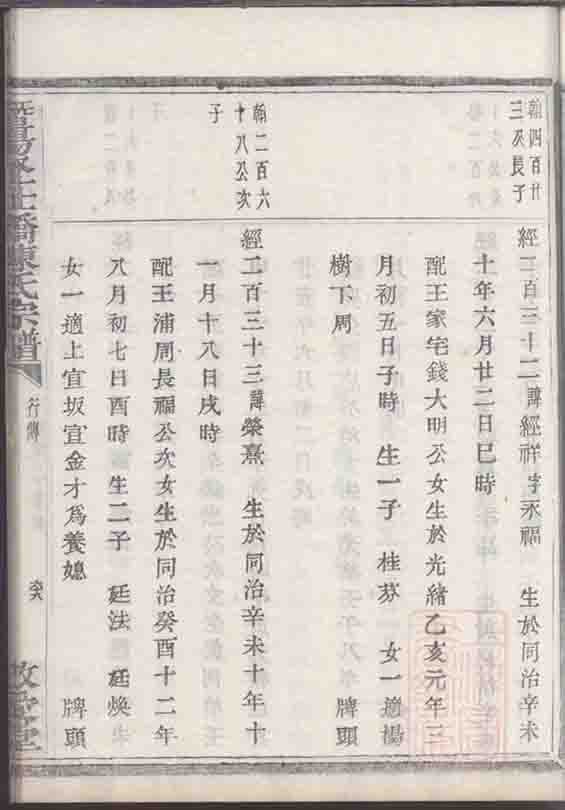 翰四百廿
三次長子
經二百三十二諱經祥字永福 生於同治辛未
十年六月廿二日巳時
配王家宅錢大明公女生於光緒乙亥元年三
月初五日子時 生一子 桂芬 女一適楊
樹下周 牌頭
翰二百六
十八公次
子
經二百三十三諱榮熹 生於同治辛未十年十
一月十八日戌時
配王浦周長福公次女生於同治癸酉十二年
八月初七日酉時 生二子 廷法 廷煥
女一適上宣坂宣金才爲養媳 牌頭
橋陳氏宗譜
行傳